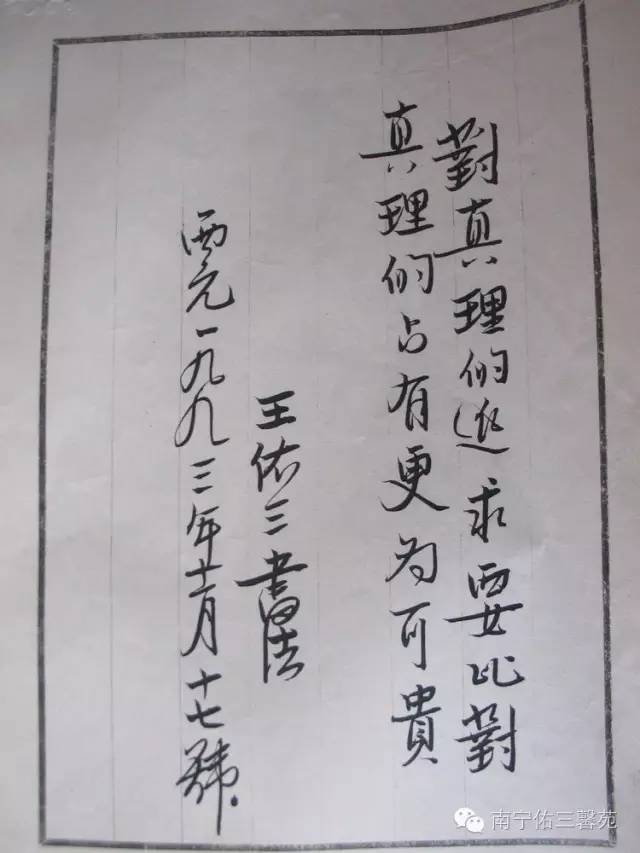 對真理的追求要比對
真理的占有更為可貴
王佑三書法
西元一九九三年十一月十七號.
南宁佑三馨苑